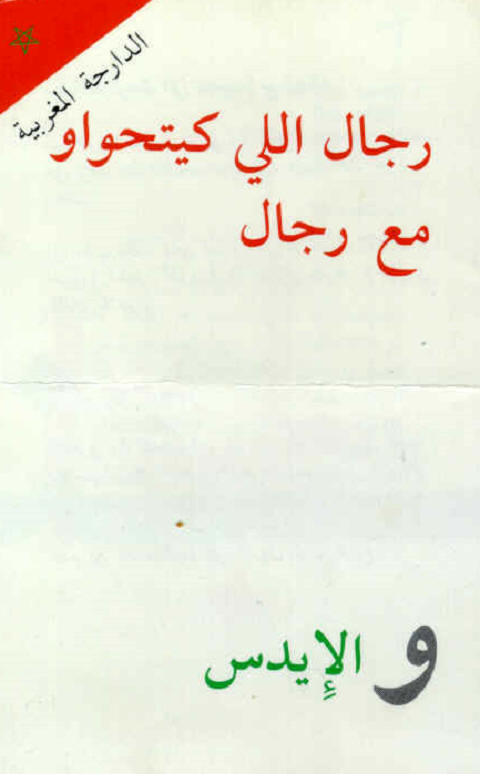 الدارجة المغربية
رجال اللي كيتحواو
مع رجال
و الإيدس